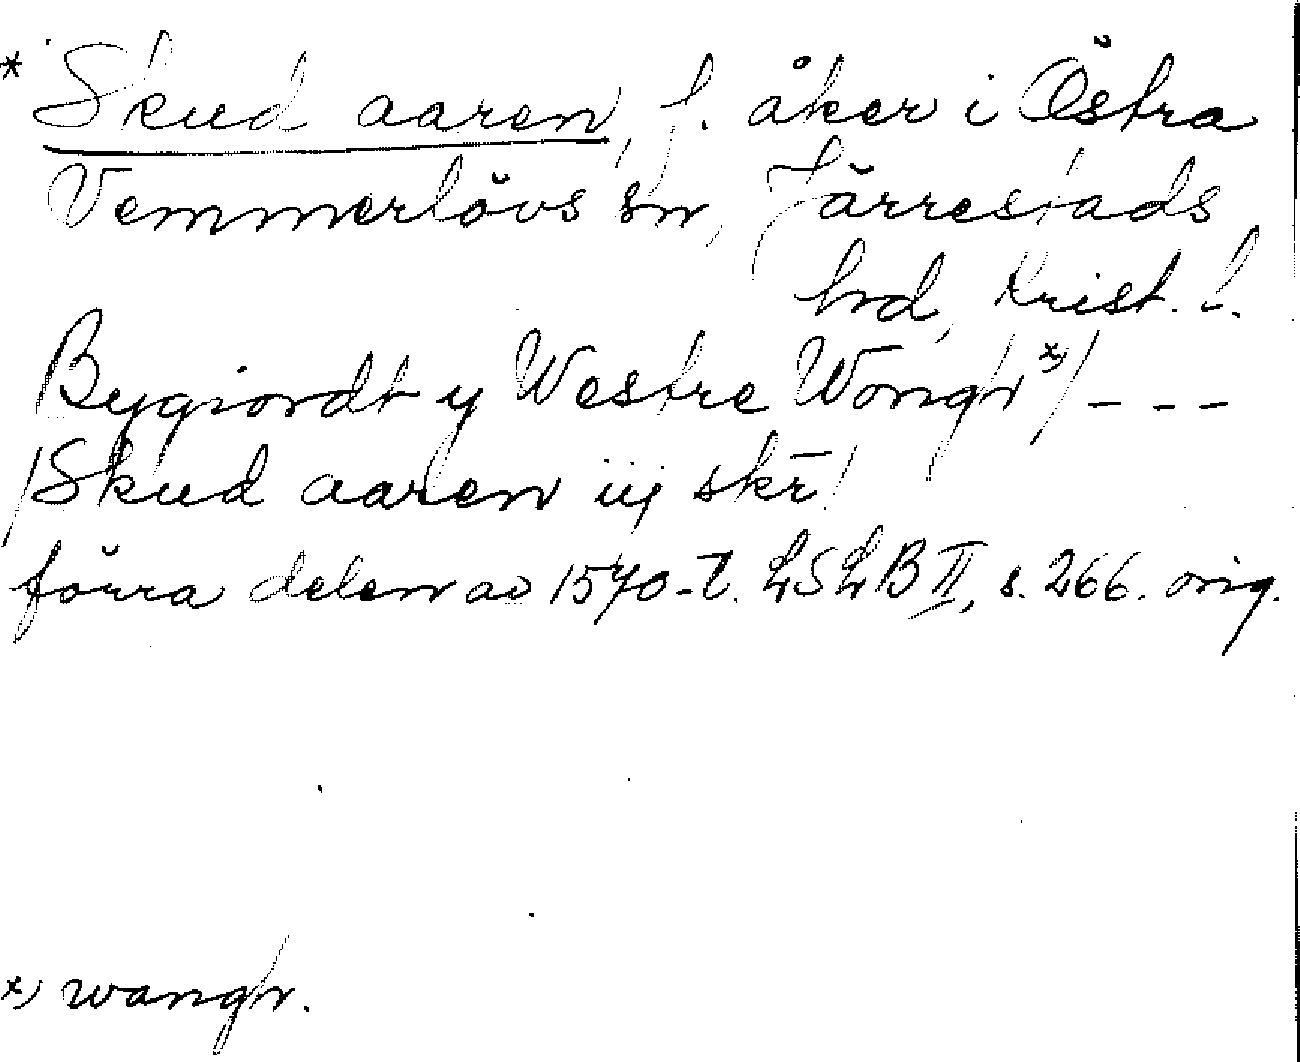 * Skud aaren, f. åker i Östra
Vemmerlövs sn, Järrestads
hrd, Krist. l.
Bygiordt y Westre Wongh x) / - - -
/ Skud aaren iij skr̄ /
förra delen av 1570-t. LSLB II, s. 266. orig.
x) wangh.